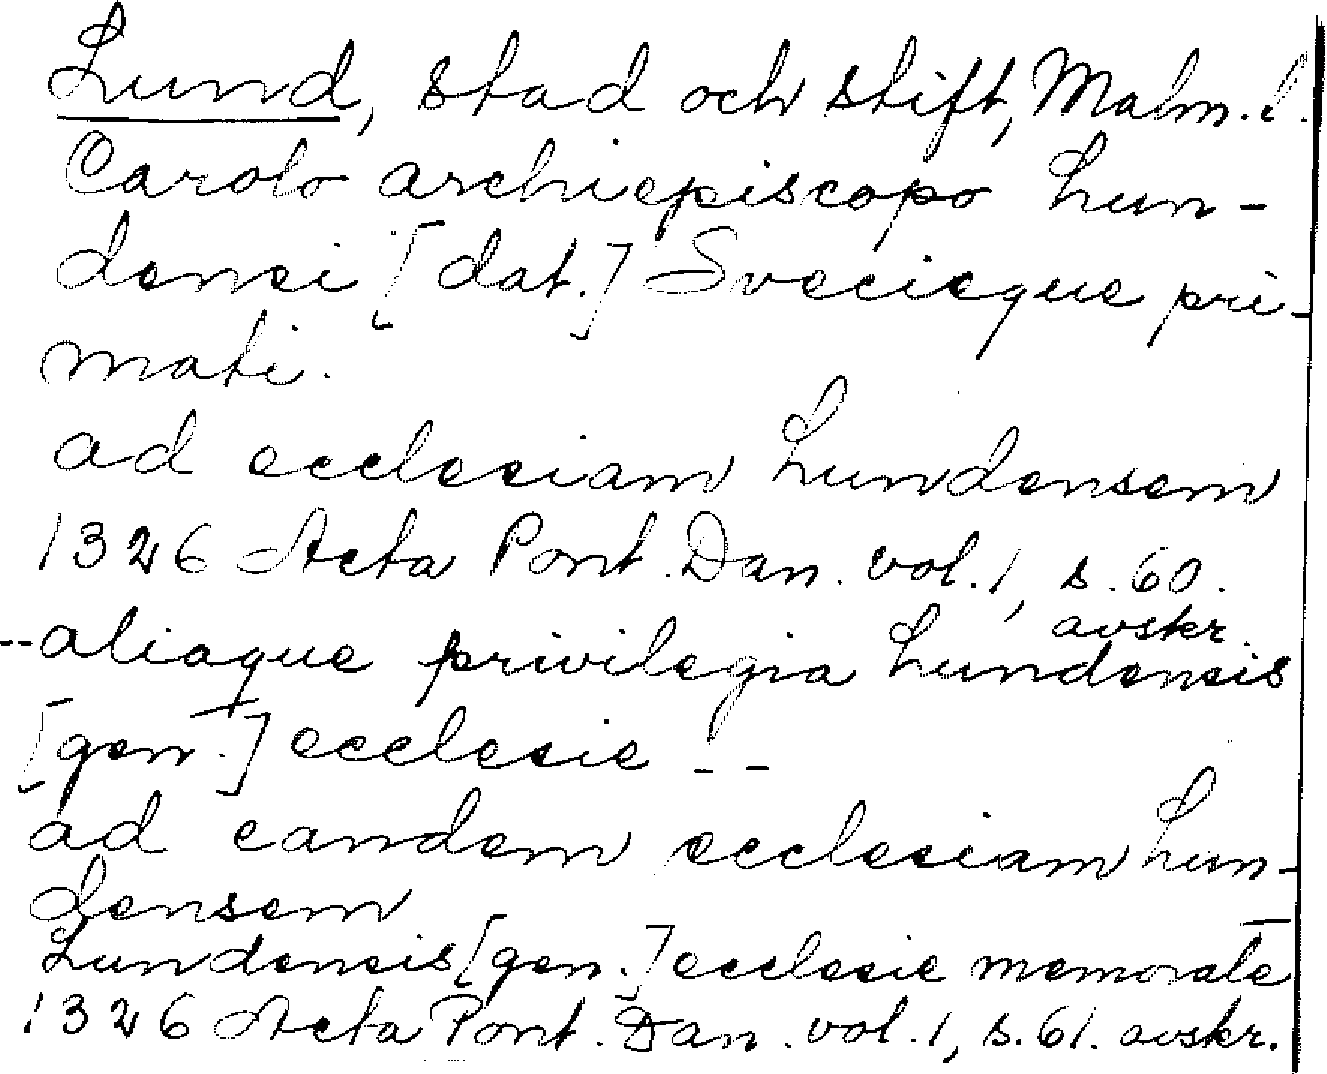 Lund, stad och stift, Malm. l.
Carolo archiepiscopo Lun-
densi [dat.] Svecieque pri-
mati.
ad ecclesiam Lundensem
1326 Acta Pont. Dan. vol. 1, s. 60.
avskr.
--aliaque privilegia Lundensis
[gen.] ecclesie --
ad eandem ecclesiam Lun-
densem
Lundensis [gen.] ecclesie memorate
1326 Acta Pont. Dan. vol. 1, s. 61. avskr.